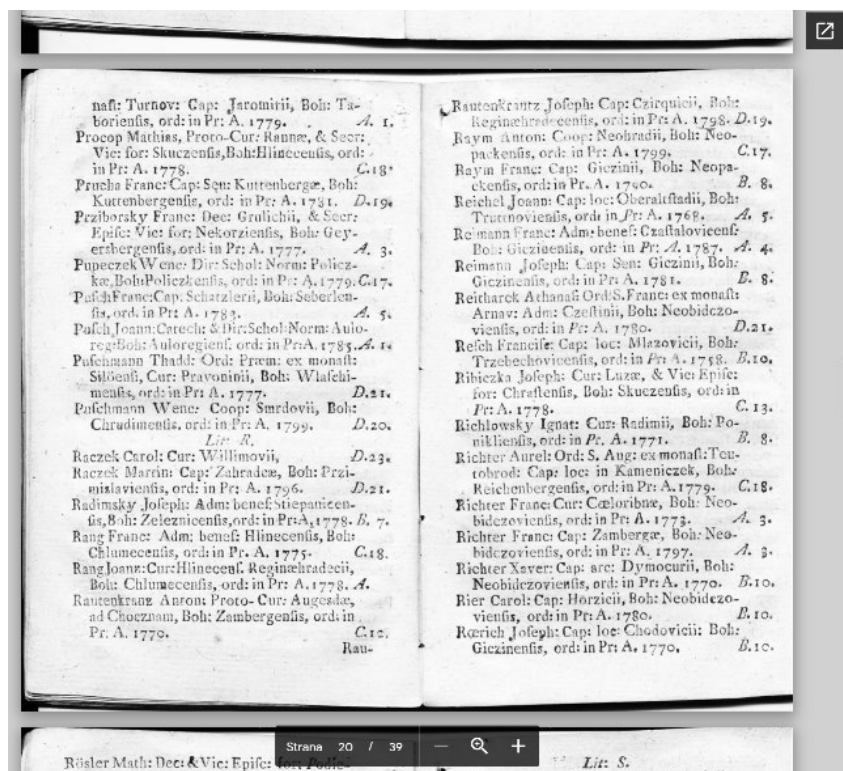 naſt: Turnov: Cap: Jaromirii, Boh: Ta-
borienſis, ord: in Pr: A. 1779. A. 1.
Procop Mathias, Proto-Cur: Rannæ, & Secr:
Vic: for: Skuczenſis, Boh: Hlinecenſis, ord:
in Pr: A. 1778. C.18.
Prucha Franc: Cap: Sen: Kuttenbergæ, Boh:
Kuttenbergenſis, ord: in Pr: A. 1781. D.19.
Prziborsky Franc: Dec: Grulichii, & Secr:
Epiſc: Vic: for: Nekorzienſis, Boh: Gey-
ersbergenſis, ord: in Pr: A. 1777. A. 3.
Pupeczek Wenc: Dir: Schol: Norm: Policz-
kæ, Boh: Policzkenſis, ord: in Pr: A. 1779. C.17.
Puſch Franc: Cap: Schatzlerii, Boh: Seberlen-
ſis, ord: in Pr: A. 1783. A. 5.
Puſch Joann: Catech: & Dir: Schol: Norm: Aulo-
reg: Boh: Auloregienſ: ord: in Pr: A. 1785. A. 1.
Puſchmann Thadd: Ord: Præm: ex monaſt:
Siloënſi, Cur: Pravoninii, Boh: Wlaſchi-
menſis, ord: in Pr: A. 1777. D.21.
Puſchmann Wenc: Coop: Smrdovii, Boh:
Chrudimenſis, ord: in Pr: A. 1799. D.20.
Lit: R.
Raczek Carol: Cur: Willimovii, D.23.
Raczek Martin: Cap: Zahradcæ, Boh: Przi-
mislavienſis, ord: in Pr: A. 1796. D.21.
Radimsky Joſeph: Adm: beneſ: Stiepanicen-
ſis, Boh: Zeleznicenſis, ord: in Pr: A. 1778. B. 7.
Rang Franc: Adm: beneſ: Hlinecenſis, Boh:
Chlumecenſis, ord: in Pr. A. 1775. C.18.
Rang Joann: Cur: Hlinecenſ. Reginæhradecii,
Boh: Chlumecenſis, ord: in Pr: A. 1778. A.
Rautenkranz Anton: Proto-Cur: Augesdæ,
ad Chocznam, Boh: Zambergenſis, ord: in
Pr: A. 1770. C.12.
Rau-
Rautenkrantz Joſeph: Cap: Czirquicii, Boh:
Reginæhradecenſis, ord: in Pr: A. 1798. D.19.
Raym Anton: Coop: Neohradii, Boh: Neo-
packenſis, ord: in Pr: A. 1799. C.17.
Raym Franc: Cap: Giczinii, Boh: Neopa-
ckenſis, ord: in Pr. A. 1790. B. 8.
Reichel Joann: Cap: loc: Oberaltſtadii, Boh:
Truttnovienſis, ord: in Pr: A. 1768. A. 5.
Reimann Franc: Adm: beneſ: Czaſtalovicenſ:
Boh: Giczinenſis, ord: in Pr: A. 1787. A. 4.
Reimann Joſeph: Cap: Sen: Giczinii, Boh:
Giczinenſis, ord: in Pr: A. 1781. B. 8.
Reitharek Athanaſ: Ord: S. Franc: ex monaſt:
Arnav: Adm: Czeſtinii, Boh: Neobidczo-
vienſis, ord: in Pr: A. 1780. D.21.
Reſch Franciſc: Cap: loc: Mlazovicii, Boh:
Trzebechovicenſis, ord: in Pr: A. 1758. B.10.
Ribiczka Joſeph: Cur: Luzæ, & Vic: Epiſc:
for: Chraſtenſis, Boh: Skuczenſis, ord: in
Pr: A. 1778. C. 13.
Richlowsky Ignat: Cur: Radimii, Boh: Po-
niklienſis, ord: in Pr. A. 1771. B. 8.
Richter Aurel: Ord: S. Aug: ex monaſt: Teu-
tobrod: Cap: loc: in Kameniczek, Boh:
Reichenbergenſis, ord: in Pr: A. 1779. C.18.
Richter Franc: Cur: Cœloribnæ, Boh: Neo-
bidczovienſis, ord: in Pr: A. 1773. A. 3.
Richter Franc: Cap: Zambergæ, Boh: Neo-
bidczovienſis, ord: in Pr: A. 1797. A. 3.
Richter Xaver: Cap: arc: Dymocurii, Boh:
Neobidczovienſis, ord: in Pr: A. 1770. B.10.
Rier Carol: Cap: Horzicii, Boh: Neobidczo-
vienſis, ord: in Pr: A. 1780. B.10.
Rœrich Joſeph: Cap: loc: Chodovicii: Boh:
Giczinenſis, ord: in Pr: A. 1770. B.10.
Strana 20 / 39
Rösler Math: Dec: & Vic: Epiſc: for: Podie-
Lit: S.